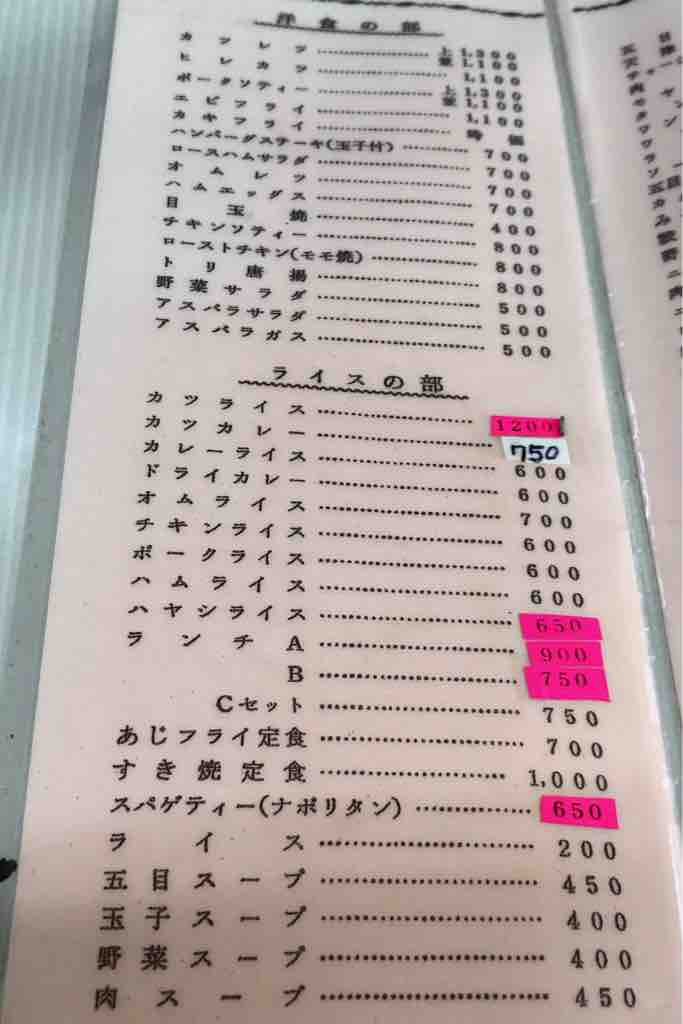 洋食の部
カツレツ 上 1,300
並 1,100
ヒレカツ 1,100
ポークソティー 上 1,300
並 1,100
エビフライ 1,100
カキフライ 時価
ハンバーグステーキ(玉子付) 700
ロースハムサラダ 700
オムレツ 700
ハムエッグス 700
目玉焼 400
チキンソティー 800
ローストチキン(モモ焼) 800
トリ唐揚 800
野菜サラダ 500
アスパラサラダ 500
アスパラガス 500
ライスの部
カツライス 1200
カツカレー 750
カレーライス 600
ドライカレー 600
オムライス 700
チキンライス 600
ポークライス 600
ハムライス 600
ハヤシライス 650
ランチ A 900
B 750
Cセット 750
あじフライ定食 700
すき焼定食 1,000
スパゲティー(ナポリタン) 650
ライス 200
五目スープ 450
玉子スープ 400
野菜スープ 400
肉スープ 450